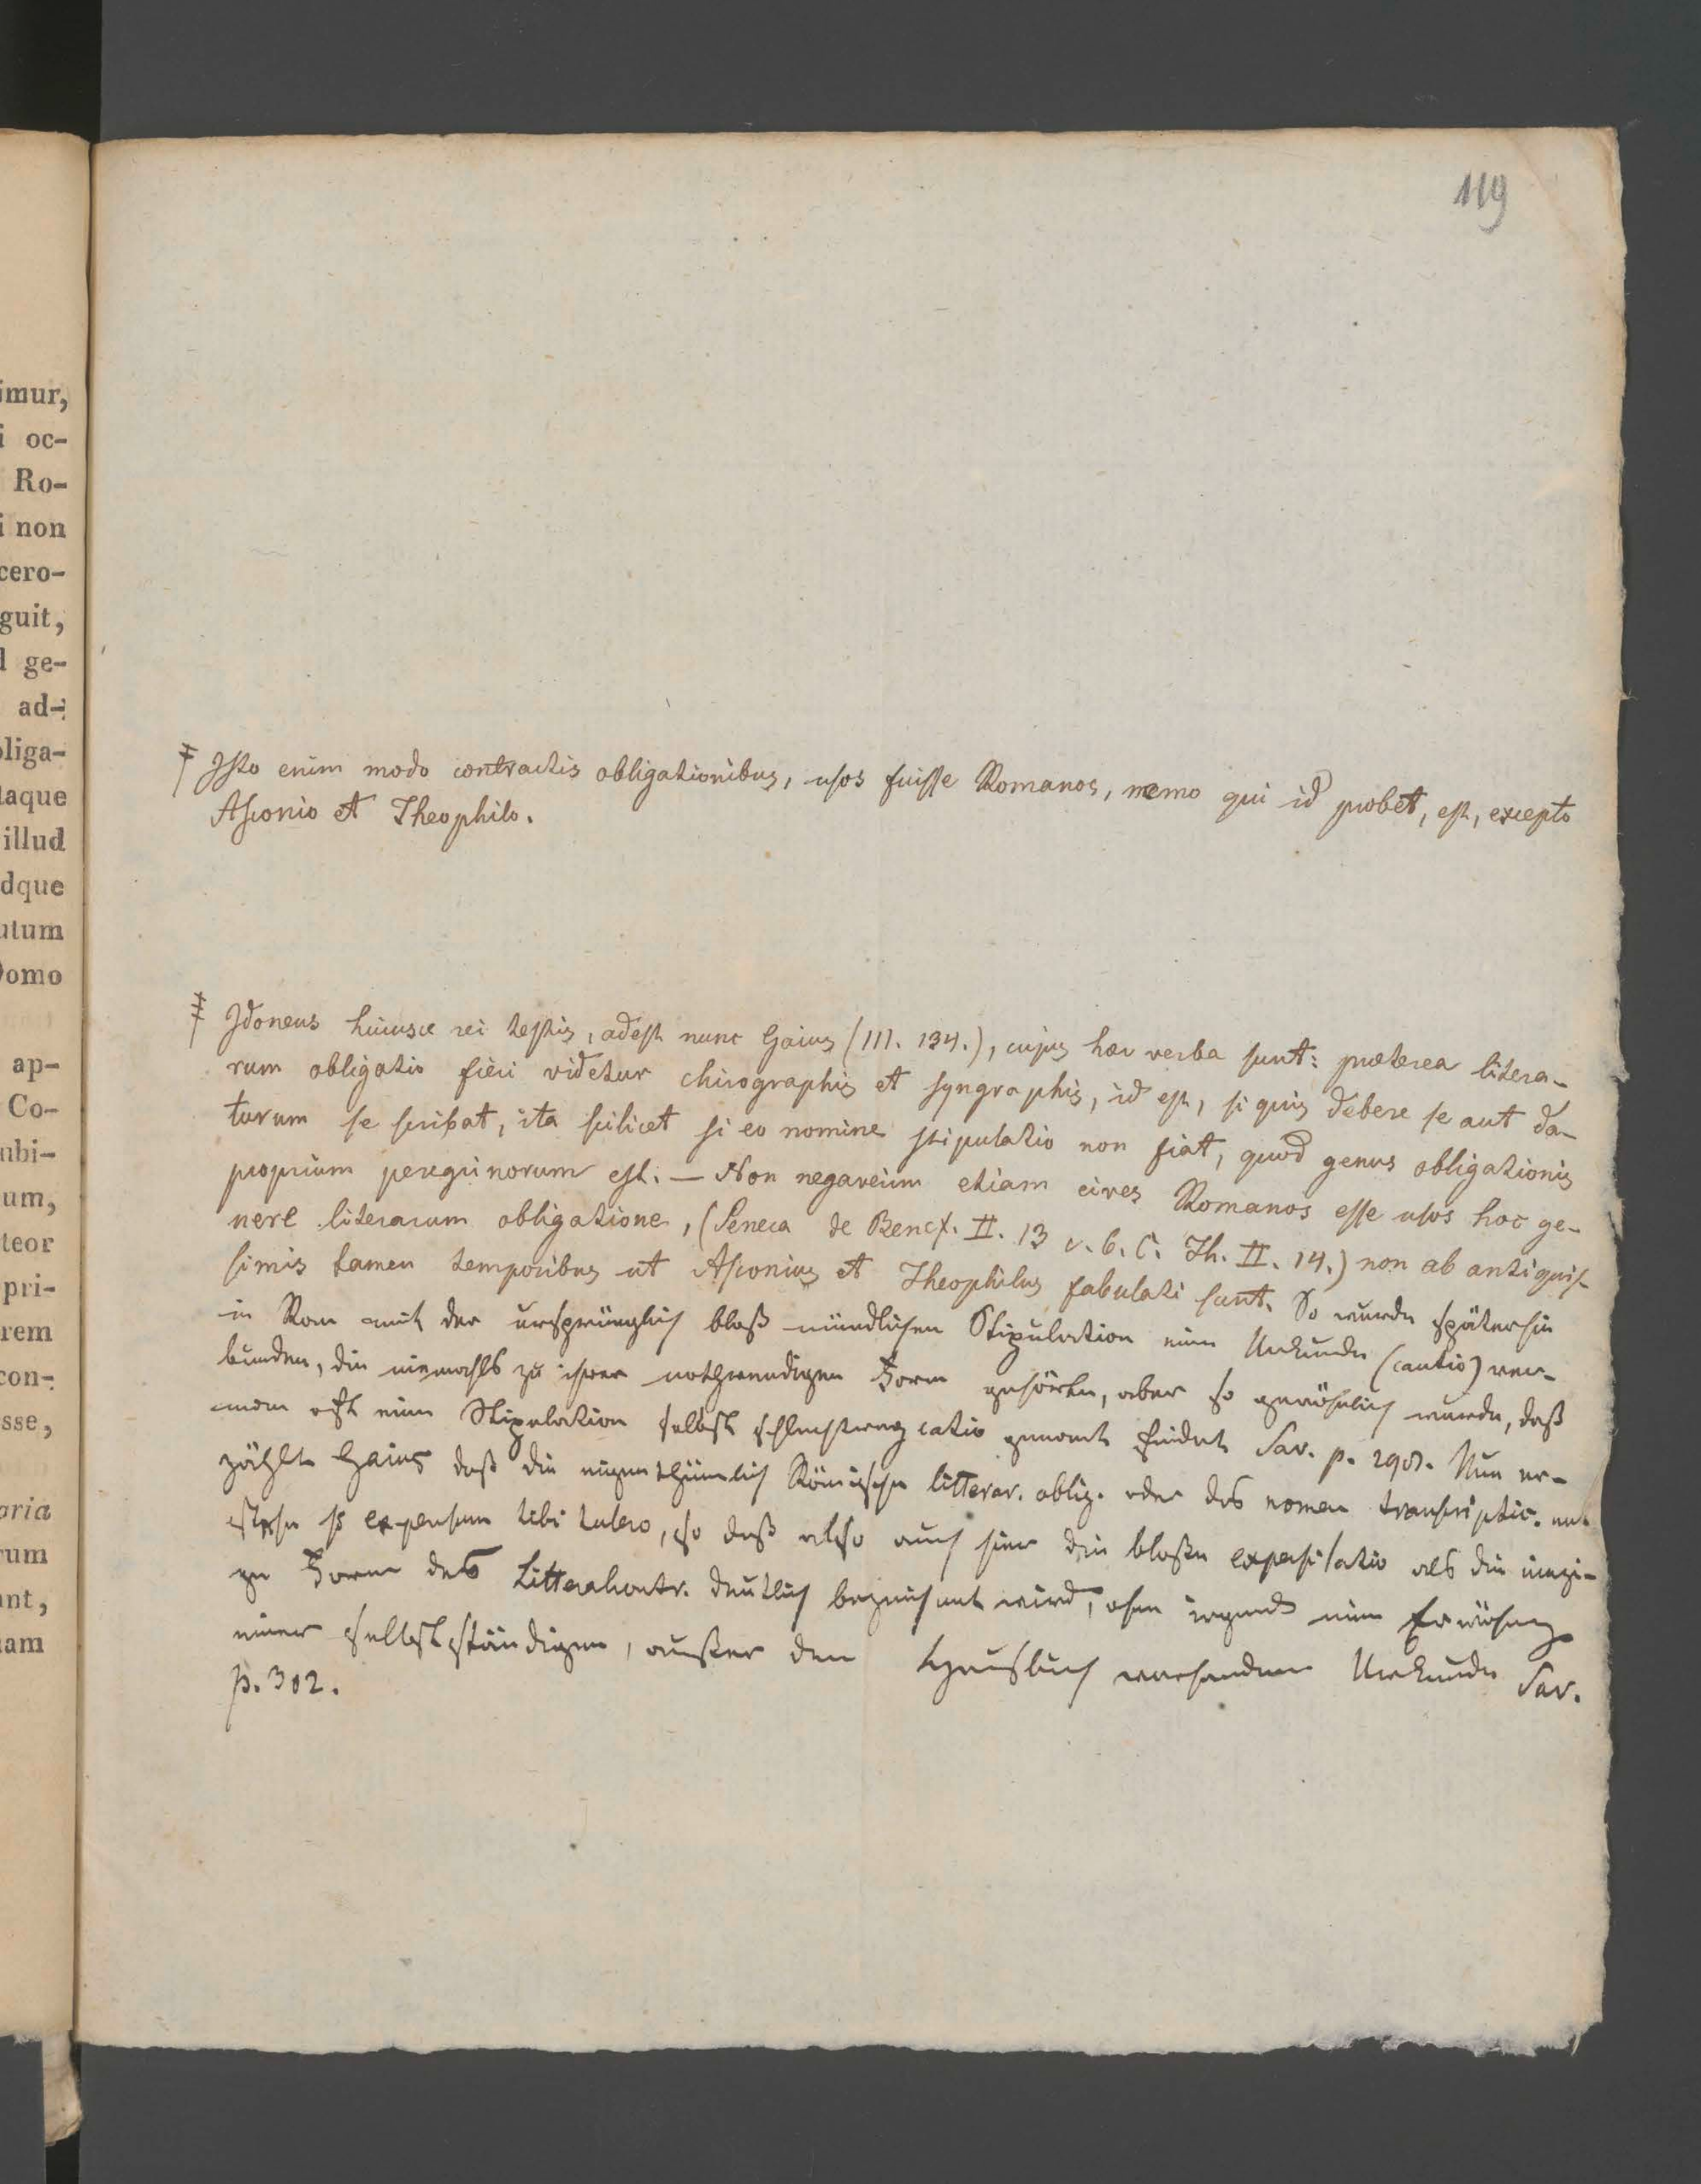 imur,
i oc-
Ro-
i non
cero-
guit,
l ge-
ad-
liga-
taque
illud
dque
utum
Domo
ap-
Co-
ubi-
um,
teor
pri-
rem
con-
sse,
oria
rum
ant,
iam
119
Isto enim modo contractis obligationibus, usos fuisse Romanos, nemo qui id probet, est, excepto
Asconio et Theophilo.
Idoneus huiusce rei testis, adest nunc Gaius (III. 134.), cujus haec verba sunt: praeterea litera-
rum obligatio fieri videtur chirographis et syngraphis, id est, si quis debere se aut da-
turum se scribat, ita scilicet si eo nomine stipulatio non fiat, quod genus obligationis
proprium peregrinorum est. — Non negaverim etiam cives Romanos esse usos hoc ge-
nere literarum obligatione, (Seneca de Benef. II. 13 C. Th. II. 14.) non ab antiquis-
simis tamen temporibus ut Asconius et Theophilus fabulati sunt. So wurde späterhin
in Rom mit der ursprünglich bloß mündlichen Stipulation eine Urkunde (cautio) ver-
bunden, die niemahls zu ihrer nothwendigen Form gehörte, aber so gewöhnlich wurde, daß
man oft eine Stipulation selbst schlechtweg catio genannt findet Sav. p. 298. Nun er-
zählt Gaius daß die eigenthümlich Römische litterar. oblig. oder das nomen transcriptic. ent-
stehe so expensum tibi tulero, so daß also auch hier die bloße expensilatio als die einzi-
ge Form des Litteralcontr. deutlich bezeichnet wird, ohne irgend eine Erwähnung
einer selbstständigen, außer dem Hausbuch vorhandenen Urkunde Sav.
p. 302.